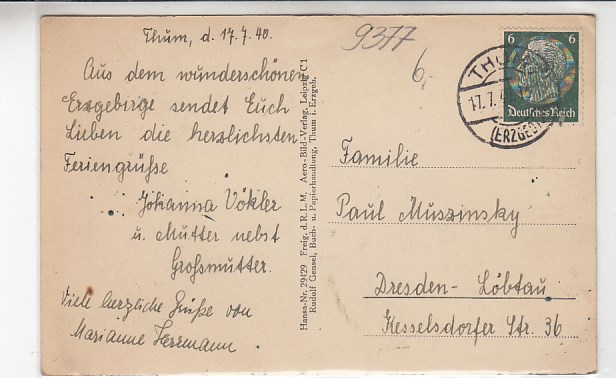 Thum, d. 17.7.40.
Aus dem wunderschönen
Erzgebirge sendet Euch
Lieben die herzlichsten
Feriengrüße
Johanna Vökler
u. Mutter nebst
Großmutter.
Viele herzliche Grüße von
Marianne Herrmann
Hansa-Nr. 29429 Freig. d. R. L. M. Aero-Bild-Verlag, Leipzig C 1
Rudolf Gensel, Buch- u. Papierhandlung, Thum i. Erzgeb.
9377
6,
6 6
Deutsches Reich
17.7.
(ERZGEB)
Familie
Paul Muszinsky
Dresden-Löbtau
Kesselsdorfer Str. 36